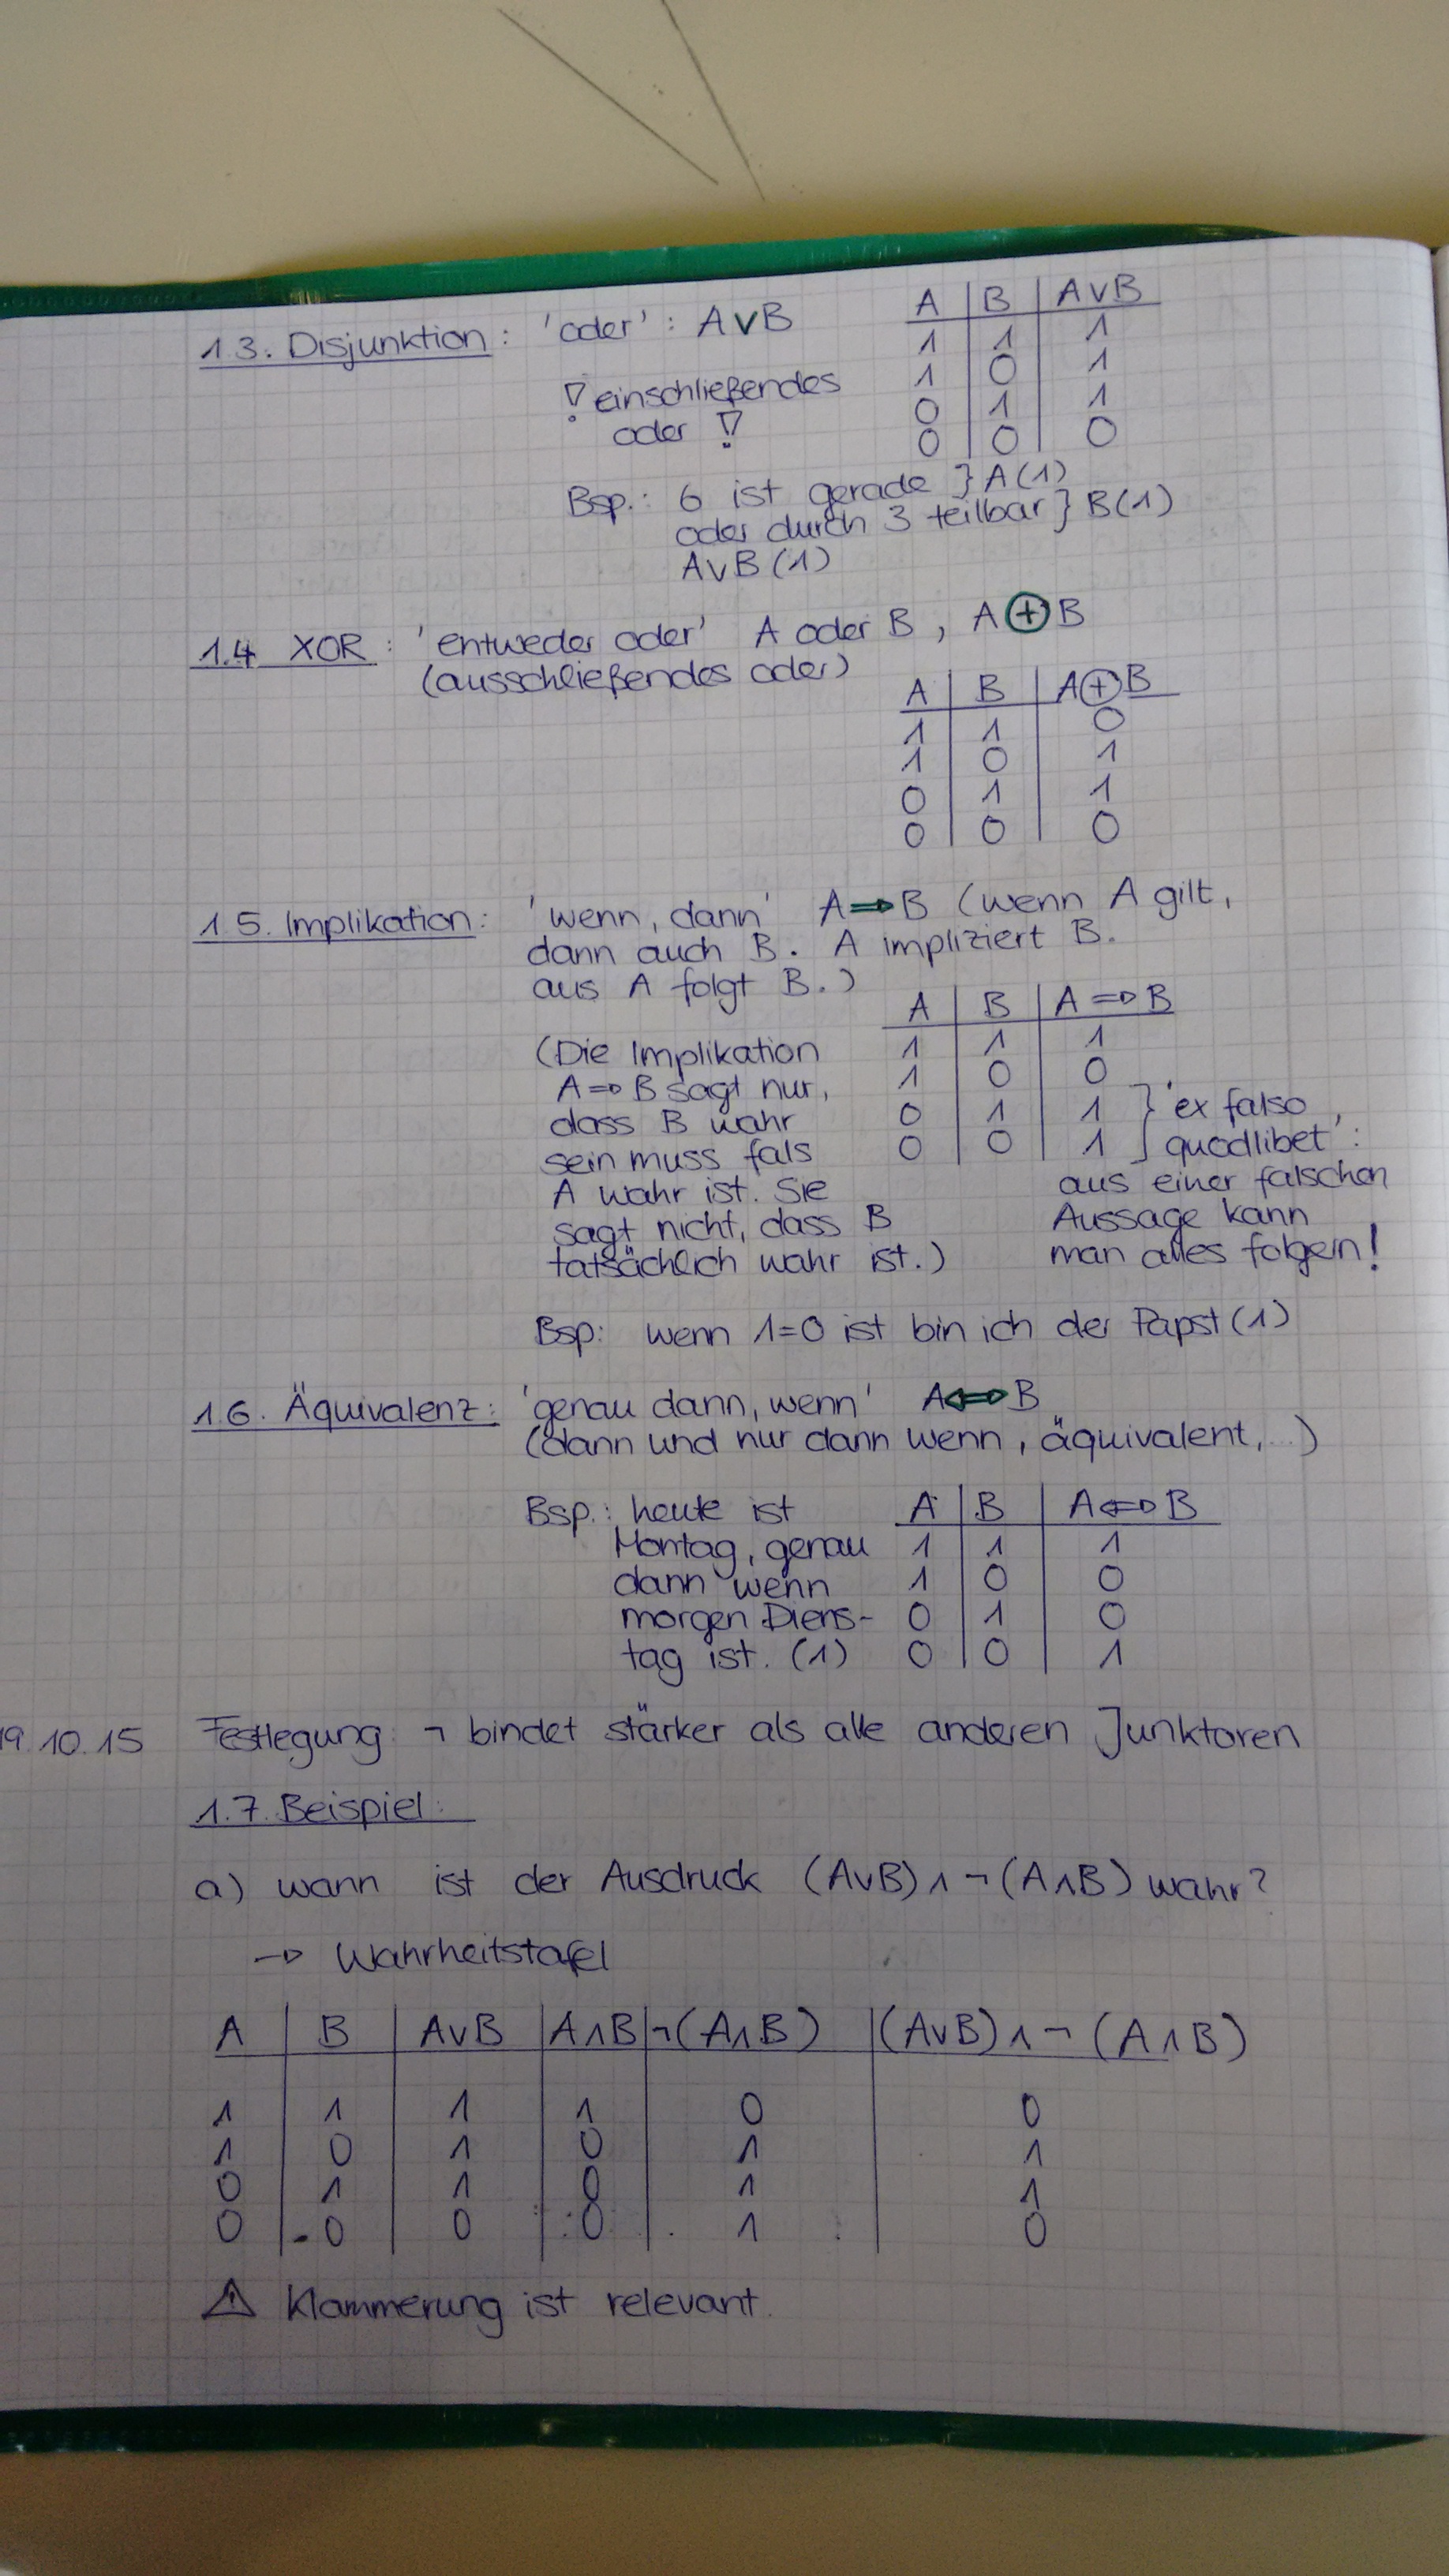 1.3. Disjunktion: 'oder': A∨B
! einschließendes
oder !
A | B | A∨B
1 | 1 | 1
1 | 0 | 1
0 | 1 | 1
0 | 0 | 0
Bsp.: 6 ist gerade } A(1)
oder durch 3 teilbar } B(1)
A∨B (1)
1.4 XOR: 'entweder oder' A oder B, A⊕B
(ausschließendes oder)
A | B | A⊕B
1 | 1 | 0
1 | 0 | 1
0 | 1 | 1
0 | 0 | 0
1.5. Implikation: 'wenn, dann' A⇒B (wenn A gilt,
dann auch B. A impliziert B.
aus A folgt B.)
(Die Implikation
A⇒B sagt nur,
dass B wahr
sein muss fals
A wahr ist. Sie
sagt nicht, dass B
tatsächlich wahr ist.)
A | B | A⇒B
1 | 1 | 1
1 | 0 | 0
0 | 1 | 1 } 'ex falso
0 | 0 | 1 } quodlibet':
aus einer falschen
Aussage kann
man alles folgern!
Bsp: wenn 1=0 ist bin ich der Papst (1)
1.6. Äquivalenz: 'genau dann, wenn' A⇔B
(dann und nur dann wenn, äquivalent, ...)
Bsp.: heute ist
Montag, genau
dann wenn
morgen Diens-
tag ist. (1)
A | B | A⇔B
1 | 1 | 1
1 | 0 | 0
0 | 1 | 0
0 | 0 | 1
19.10.15 Festlegung: ¬ bindet stärker als alle anderen Junktoren
1.7. Beispiel:
a) wann ist der Ausdruck (A∨B)∧¬(A∧B) wahr?
→ Wahrheitstafel
A | B | A∨B | A∧B | ¬(A∧B) | (A∨B)∧¬(A∧B)
1 | 1 | 1 | 1 | 0 | 0
1 | 0 | 1 | 0 | 1 | 1
0 | 1 | 1 | 0 | 1 | 1
0 | 0 | 0 | 0 | 1 | 0
⚠ Klammerung ist relevant.